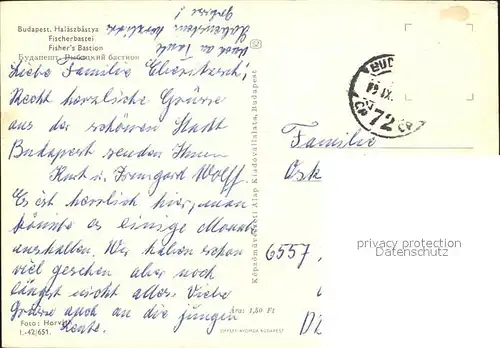 Budapest. Halászbástya
Fischerbastei
Fisher's Bastion
Будапешт. Рыбацкий бастион
auch an Tante
herzliche
Grüsse!
Liebe Familie
Recht herzliche Grüsse
aus der schönen Stadt
Budapest senden Ihnen
Kurt u. Irmgard Wolff.
Es ist herrlich hier, man
könnte es einige Monate
aushalten. Wir haben schon
viel gesehen aber noch
längst nicht alles. Viele
Grüsse auch an die jungen
Leute.
Foto: Horváth
L-42/651.
Ára: 1,50 Ft
OFFSET-NYOMDA BUDAPEST
Képzőművészeti Alap Kiadóvállalata, Budapest
BUD
72
CP
CP
Familie
Osk
6557
privacy protection
Datenschutz